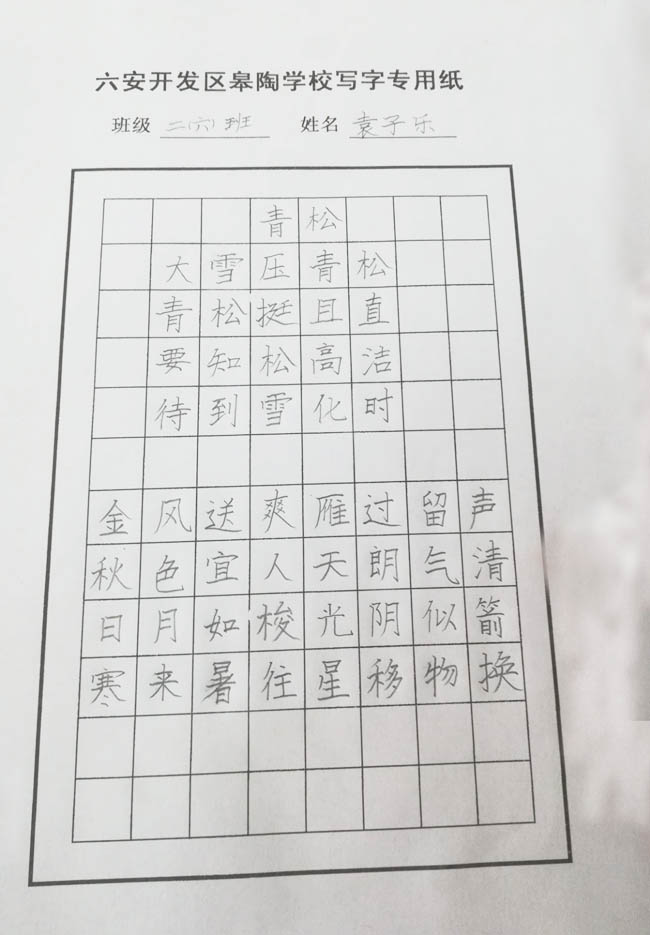 六安开发区皋陶学校写字专用纸
班级 二(六)班 姓名 袁子乐
青松
大雪压青松
青松挺且直
要知松高洁
待到雪化时
金风送爽雁过留声
秋色宜人天朗气清
日月如梭光阴似箭
寒来暑往星移物换